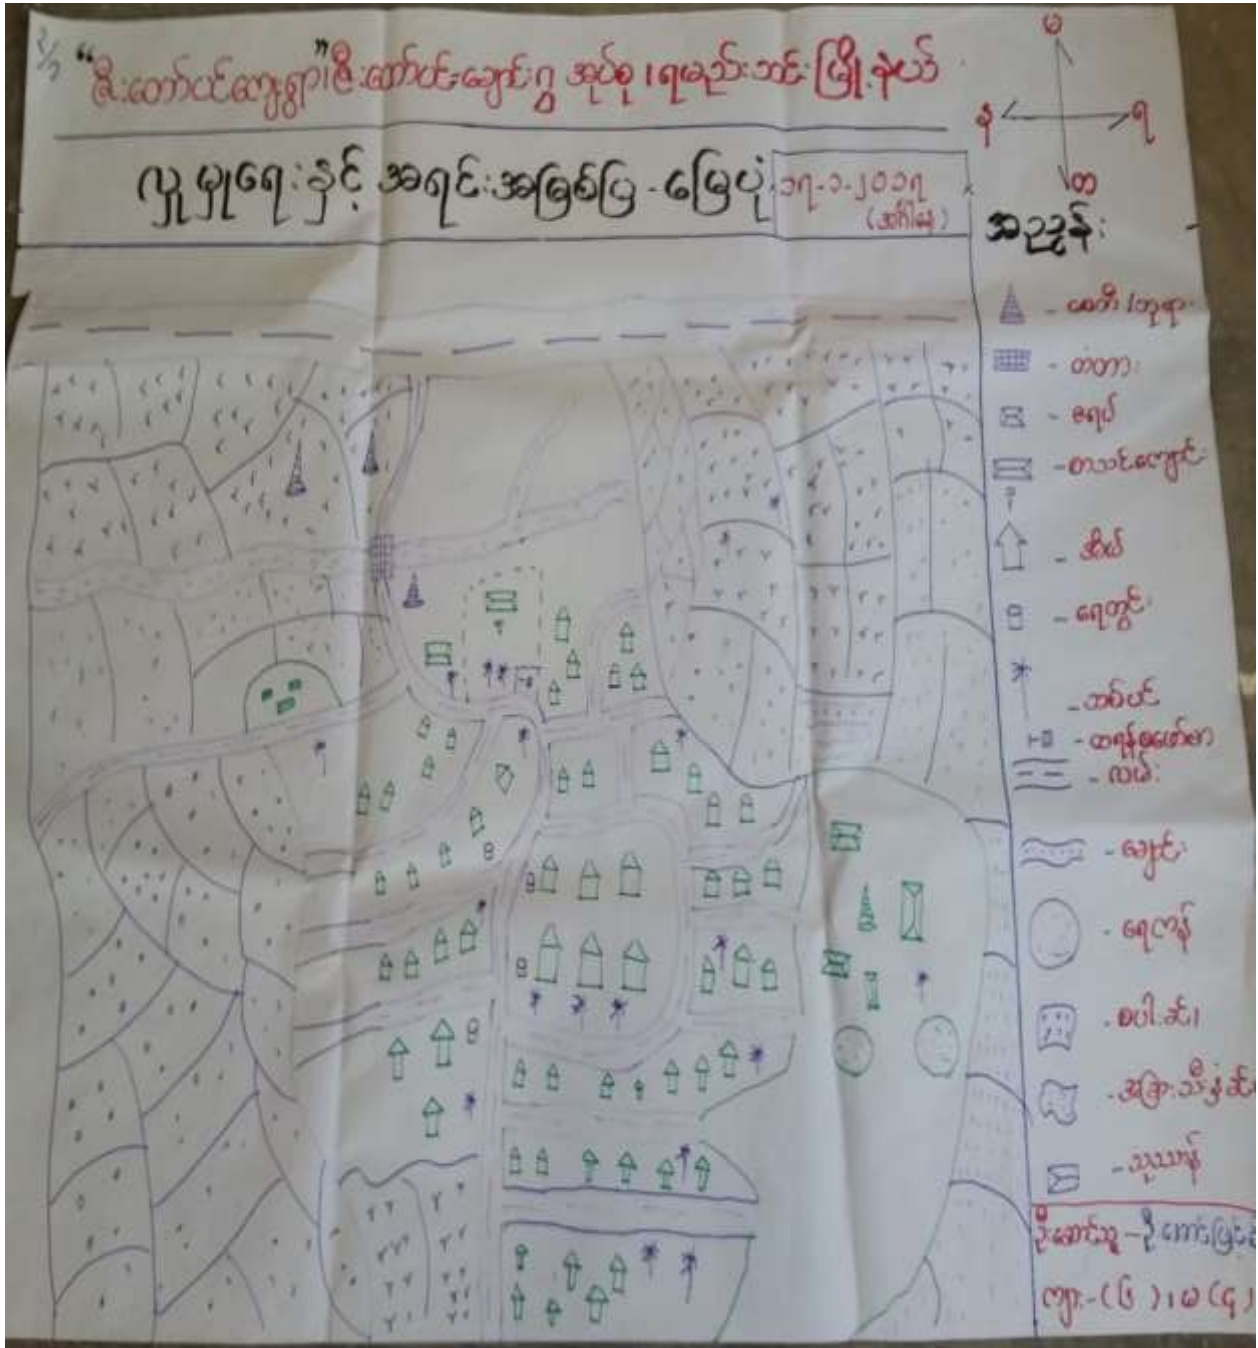 "ဇီးတော်ပင်ကျေးရွာ"ဇီးတော်ပင်ချောင်းဂွ အုပ်စု၊ရမည်းသင်းမြို့နယ်
လူမှုရေးနှင့် အရင်းအမြစ်ပြ-မြေပုံ
၁၇-၁-၂၀၁၇
(အင်္ဂါနေ့)
မ
န
ရ
တ
အညွှန်း
- စေတီ/ဘုရား
- တံတား
- ဇရပ်
- စာသင်ကျောင်း
- အိမ်
- ရေတွင်း
- ထန်းပင်
- ထရန်စဖော်မာ
- လမ်း
- ချောင်း
- ရေကန်
- စပါးခင်း
- အခြားသီးနှံခင်း
- သုသာန်
ဦးဆောင်သူ-ဦး
ကျား-(၆)၊မ(၄)